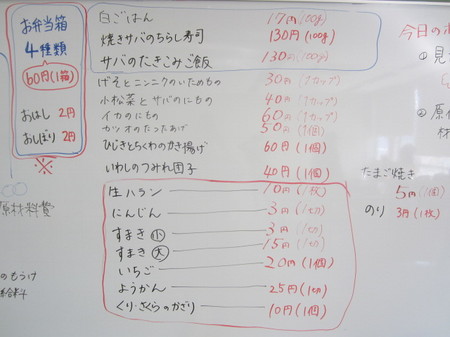 お弁当箱
4種類
60円(1箱)
おはし 2円
おしぼり 2円
※
原材料費
のもうけ
白ごはん 17円(100g)
焼きサバのちらし寿司 130円(100g)
サバのたきこみご飯 130円(100g)
げそとニンニクのいためもの 30円(1カップ)
小松菜とサバのにもの 40円(1カップ)
イカのにもの 60円(1カップ)
カツオのたったあげ 50円(1個)
ひじきとちくわのかき揚げ 60円(1個)
いわしのつみれ団子 40円(1個)
生ハラン 10円(1枚)
にんじん 3円(1切)
すまき小 3円(1切)
すまき大 15円(1切)
いちご 20円(1個)
ようかん 25円(1切)
くり・さくらのかざり 10円(1個)
今日の
① 見
② 原
たまご焼き
5円(1個)
のり 3円(1枚)